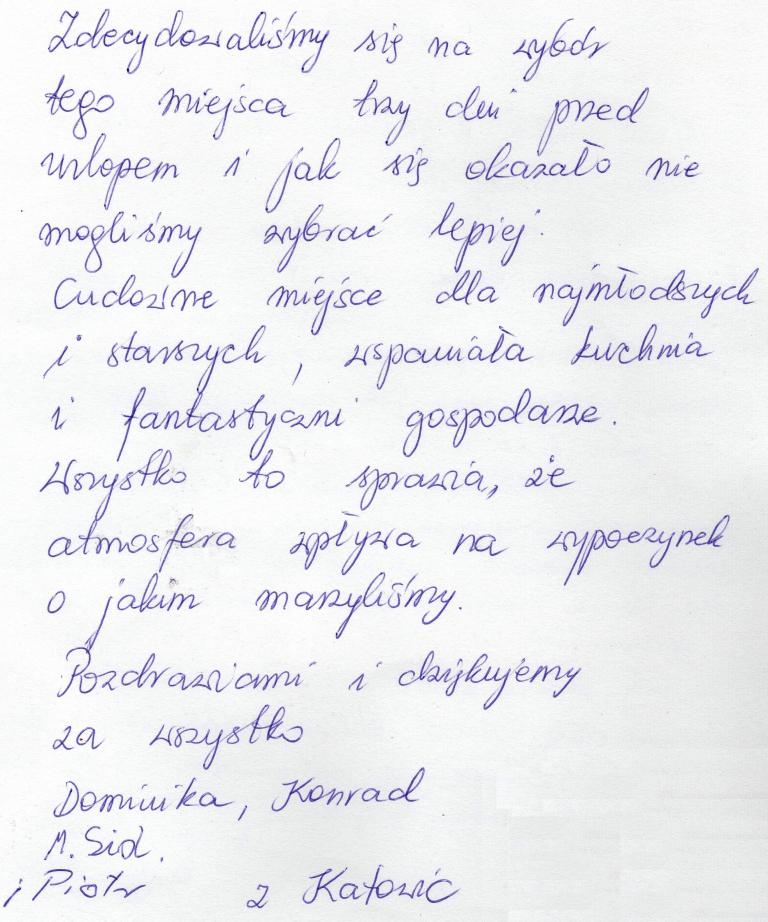 Zdecydowaliśmy się na wybór
tego miejsca trzy dni przed
urlopem i jak się okazało nie
mogliśmy wybrać lepiej.
Cudowne miejsce dla najmłodszych
i starszych, wspaniała kuchnia
i fantastyczni gospodarze.
Wszystko to sprawia, że
atmosfera wpływa na wypoczynek
o jakim marzyliśmy.
Pozdrawiami i dziękujemy
za wszystko
Dominika, Konrad
M. Sid.
i Piotr z Katowic